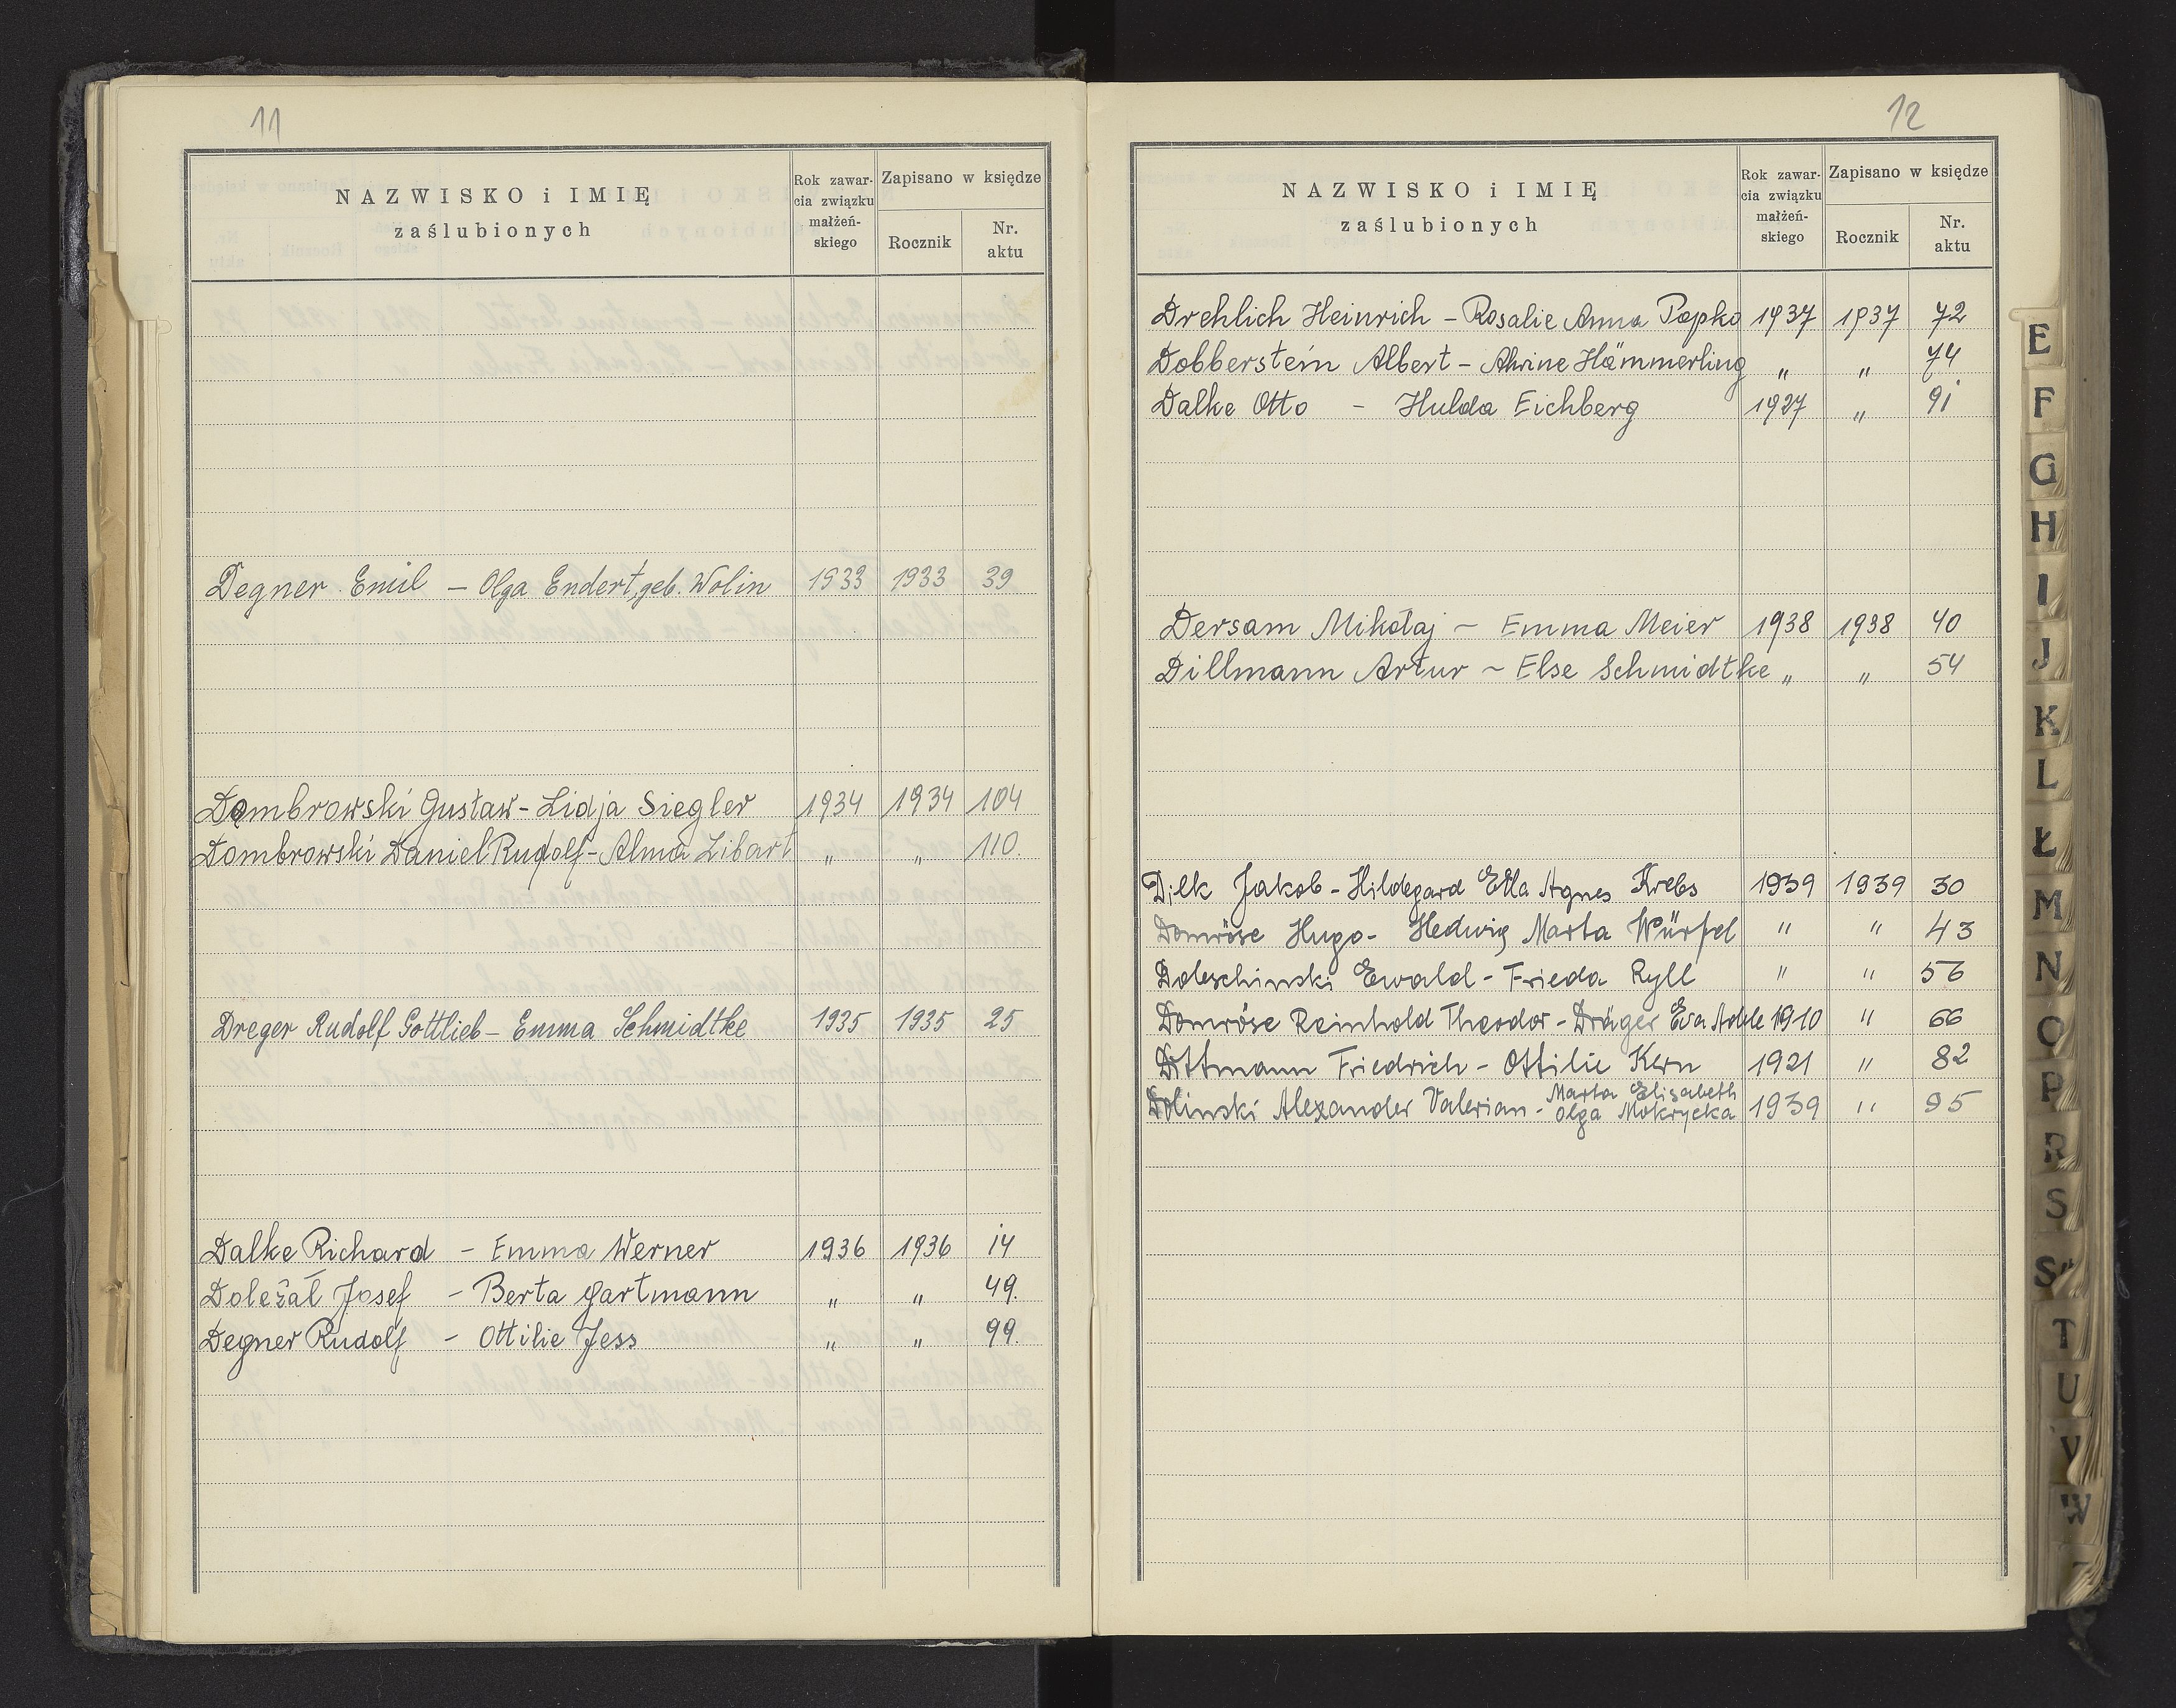 11
NAZWISKO i IMIĘ
zaślubionych
Rok zawar-
cia związku
małżeń-
skiego
Zapisano w księdze
Rocznik
Nr.
aktu
Degner Emil – Olga Endert, geb. Wolin 1933 1933 39
Dombrowski Gustaw - Lidja Siegler 1934 1934 104
Dombrowski Daniel Rudolf - Alma Libart " " 110.
Dreger Rudolf Gottlieb – Emma Schmidtke 1935 1935 25
Dalke Richard – Emma Werner 1936 1936 14
Doležal Josef – Berta Gartmann " " 49.
Degner Rudolf – Ottilie Jess " " 99.
12
NAZWISKO i IMIĘ
zaślubionych
Rok zawar-
cia związku
małżeń-
skiego
Zapisano w księdze
Rocznik
Nr.
aktu
Drehlich Heinrich – Rosalie Anna Popko 1937 1937 72
Dobberstein Albert – Hämmerling " " 74
Dalke Otto – Hulda Eichberg 1927 " 91
Dersam Mikołaj – Emma Meier 1938 1938 40
Dillmann Artur – Else Schmidtke " " 54
Dilk Jakob - Hildegard Etla Agnes Krebs 1939 1939 30
Domröse Hugo - Hedwig Marta Würfel " " 43
Doleschinski Ewald - Frieda Ryll " " 56
Domröse Reinhold Theodor - Dräger Eva 1910 " 66
Dittmann Friedrich - Ottilie Kern 1921 " 82
Dolinski Alexander Valerian - Marta Elisabeth
Olga Mokrycka 1939 " 95
E
F
G
H
I
J
K
L
Ł
M
N
O
P
R
S
Ś
T
U
V
W
Z